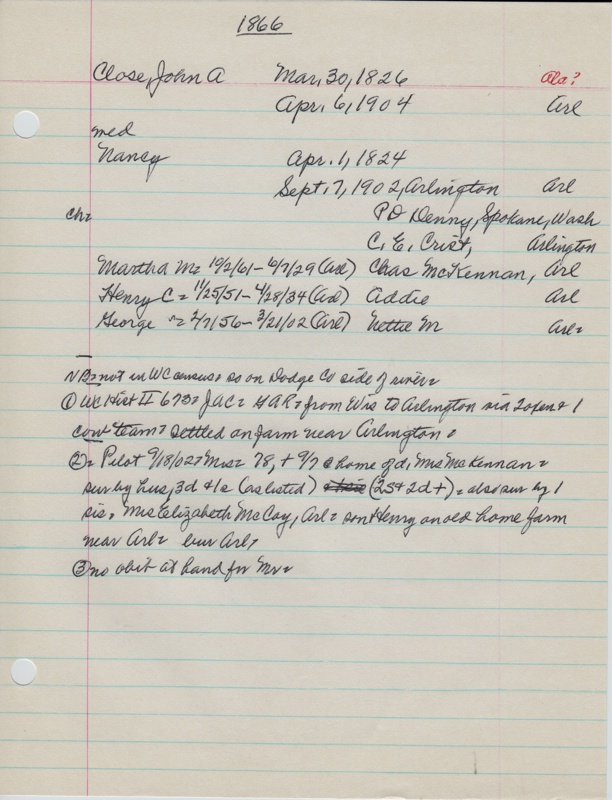 1866
Close, John A Mar, 30, 1826 Ala?
Apr. 6, 1904 Arl
med
Nancy Apr. 1, 1824
Sept. 7, 1902, Arlington Arl
ch= PD Denny, Spokane, Wash
C, E, Crist, Arlington
Martha M= 10/2/61-6/7/29 (Arl) Chas McKennan, Arl
Henry C = 11/25/51- 4/28/34 (Arl) Addie Arl
George = 2/7/56- 3/21/02 (Arl) Nettie M Arl=
NB= not in WC census= so on Dodge Co side of river=
① WC Hist II 673= JAC= GAR= from Wis to Arlington via 2 oxen & 1
cow team= settled on farm near Arlington =
②= Pilot 9/18/02= Mrs= 78, + 9/7 @ home of d, Mrs McKennan=
sur by hus, 3d & 1s (as listed) (2s+2d+)= also sur by 1
sis= Mrs Elizabeth McCoy, Arl= son Henry on old home farm
near Arl= bur Arl,
③ no obit at hand for Mr=